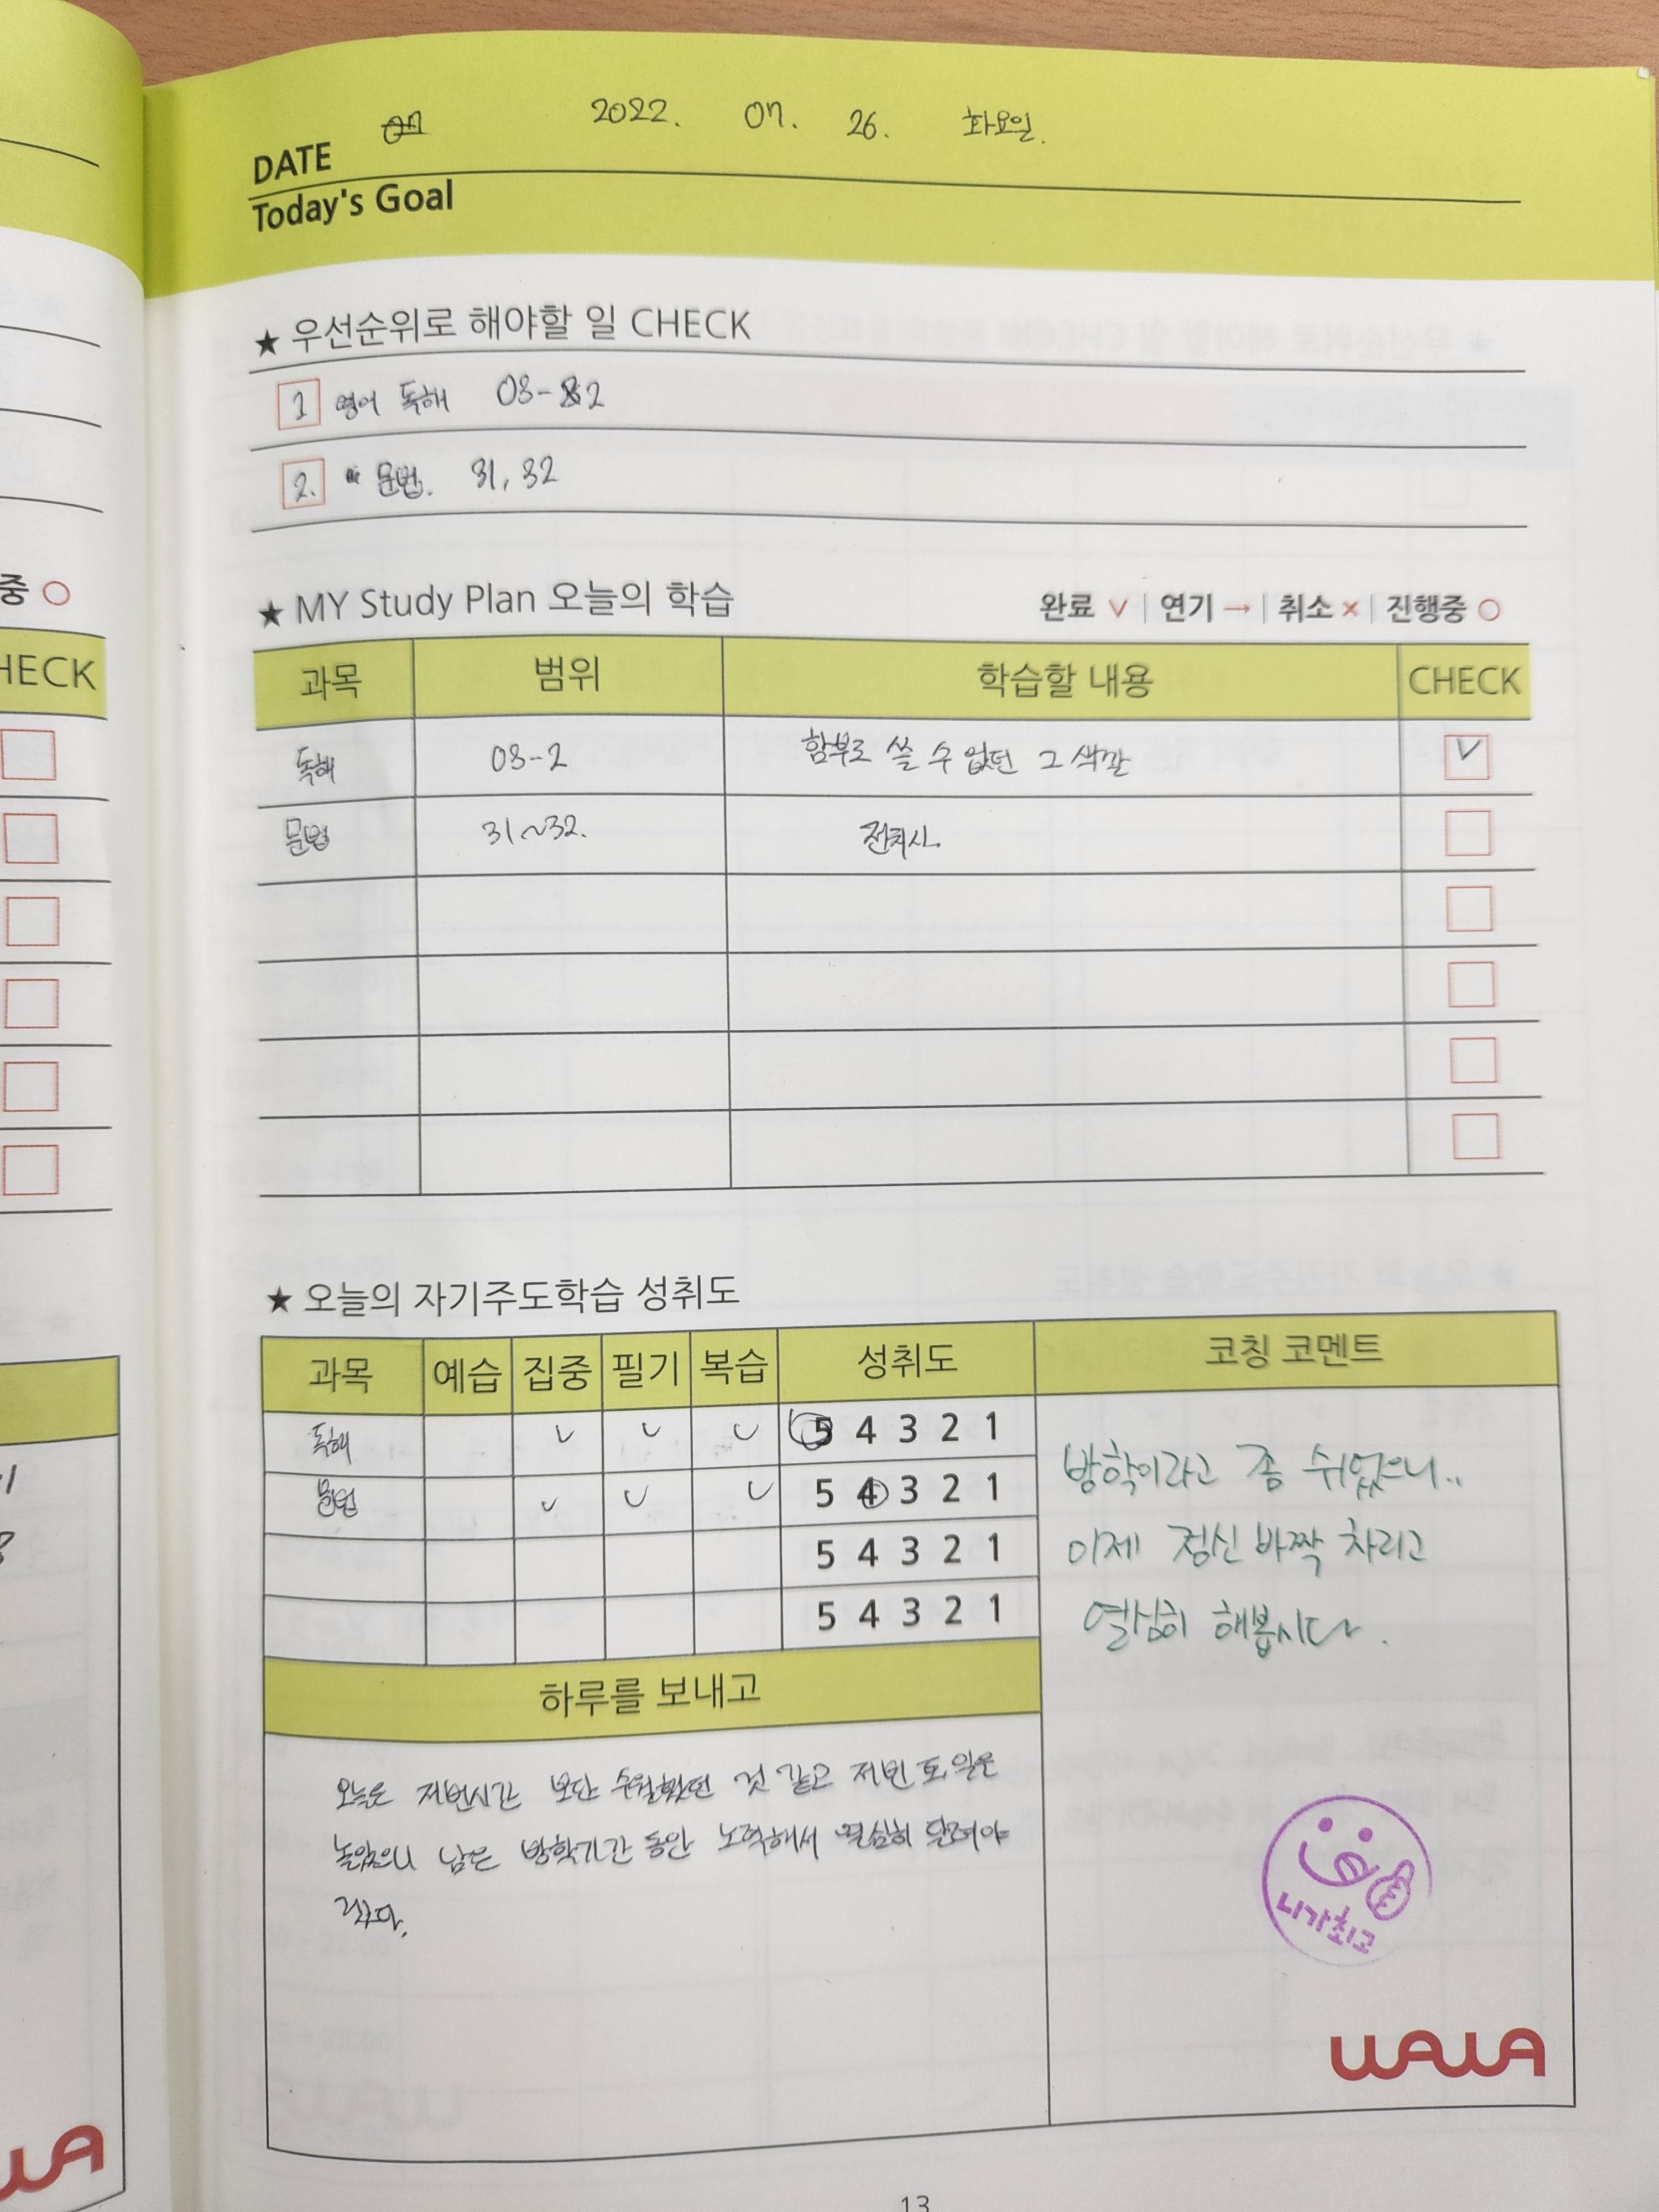 2022. 07. 26. 화요일.
DATE
Today's Goal
★ 우선순위로 해야할 일 CHECK
1 영어 독해 03-2
2. 〃 문법. 31, 32
★ MY Study Plan 오늘의 학습
완료 V | 연기 → | 취소 × | 진행중 ○
과목 범위 학습할 내용 CHECK
독해 03-2 함부로 쓸 수 없던 그 색깔 V
문법 31~32. 전치사.
★ 오늘의 자기주도학습 성취도
과목 예습 집중 필기 복습 성취도 코칭 코멘트
독해 V V V 5 4 3 2 1
문법 V V V 5 4 3 2 1
5 4 3 2 1
5 4 3 2 1
방학이라고 좀 쉬었으니..
이제 정신 바짝 차리고
열심히 해봅시다.
하루를 보내고
오늘은 저번시간 보단 수월했던 것 같고 저번 토, 일은
놀았으니 남은 방학기간 동안 노력해서 열심히 달려야
겠다.
니가최고
WAWA
13
중 ○
HECK